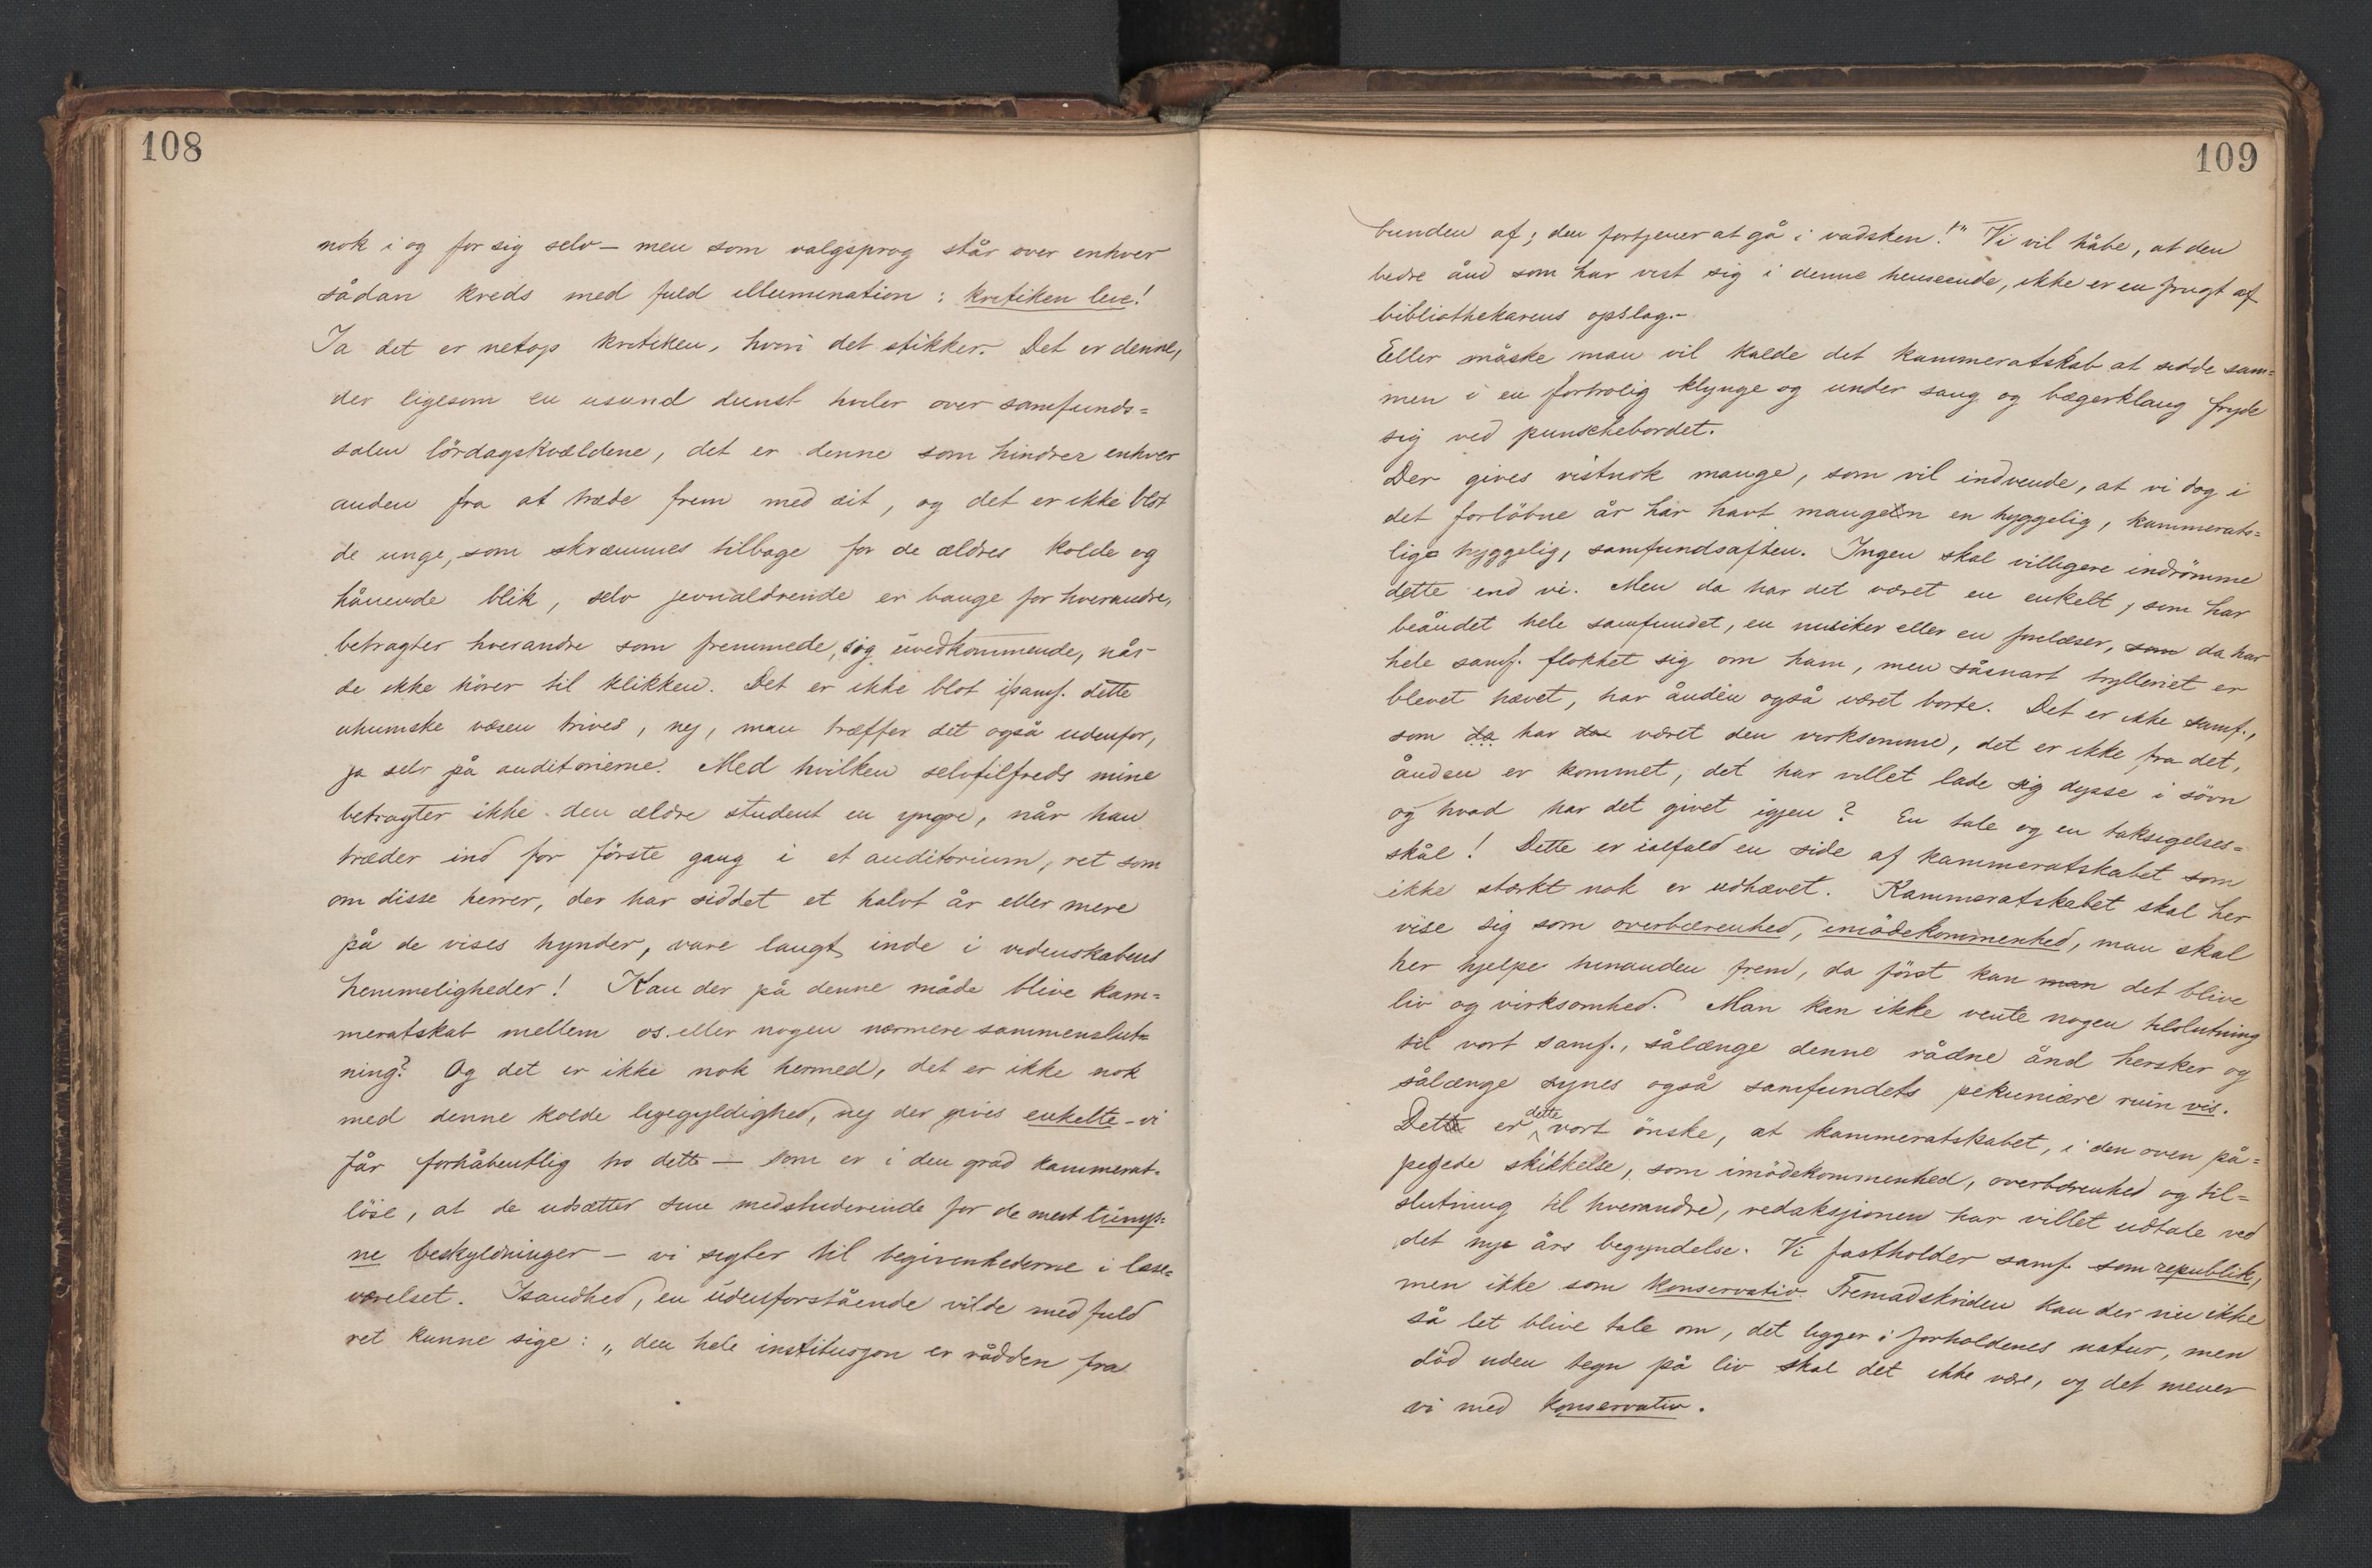 108
nok i og for sig selv – men som valgsprog står over enhver
sådan kreds med fuld illumination: kritiken leve!
Ja det er netop kritiken, hvori det stikker. Det er denne,
der ligesom en usund dunst hviler over samfunds=
salen lördagskvældene, det er denne som hindrer enhver
anden fra at træde frem med sit, og det er ikke blot
de unge, som skræmmes tilbage for de ældres kolde og
hånende blik, selv jevnaldrende er bange for hverandre,
betragter hverandre som fremmede, sig uvedkommende, når
de ikke hörer til klikken. Det er ikke blot i samf. dette
uhumske væsen trives, nej, man træffer det også udenfor,
ja selv på auditorierne. Med hvilken selvtilfreds mine
betragter ikke den ældre student en yngre, når han
træder ind for förste gang i et auditorium, ret som
om disse herrer, der har siddet et halvt år eller mere
på de vises hynder, vare langt inde i videnskabens
hemmeligheder! Kan der på denne måde blive kam=
meratskab mellem os eller nogen nærmere sammenslut=
ning? Og det er ikke nok hermed, det er ikke nok
med denne kolde ligegyldighed, nej der gives enkelte – vi
får forhåbentlig tro dette – som er i den grad kammerat=
löse, at de udsætter sine medstuderende for de mest lump=
ne beskyldninger – vi sigter til begivenhederne i læse=
værelset. Isandhed, en udenforstående vilde med fuld
ret kunne sige: „den hele institusjon er rådden fra
109
bunden af; den fortjener at gå i vadsken!" Vi vil håbe, at den
bedre ånd som har vist sig i denne henseende, ikke er en frugt af
bibliothekarens opslag.–
Eller måske man vil kalde det kammeratskab at sidde sam=
men i en fortrolig klynge og under sang og bægerklang fryde
sig ved punschebordet.
Der gives vistnok mange, som vil indvende, at vi dog i
det forlöbne år har havt mangen en hyggelig, kammerats=
lige hyggelig, samfundsaften. Ingen skal villigere indrömme
dette end vi. Men da har det været en enkelt, som har
beåndet hele samfundet, en musiker eller en forelæser, som da har
hele samf. flokket sig om ham, men såsnart trylleriet er
blevet hævet, har ånden også været borte. Det er ikke samf.,
som da har da været den virksomme, det er ikke fra det,
ånden er kommet, det har villet lade sig dysse i sövn
og hvad har det givet igjen? En tale og en taksigelses=
skål! Dette er ialfald en side af kammeratskabet som
ikke stærkt nok er udhævet. Kammeratskabet skal her
vise sig som overbærenhed, imödekommenhed, man skal
her hjelpe hinanden frem, da först kan man det blive
liv og virksomhed. Man kan ikke vente nogen tilslutning
til vort samf., sålænge denne rådne ånd hersker og
sålænge synes også samfundets pekuniære ruin vis.
Dette er dette vort önske, at kammeratskabet, i den oven på=
pegede skikkelse, som imödekommenhed, overbærenhed og til=
slutning til hverandre, redaksjionen har villet udtale ved
det nye års begyndelse. Vi fastholder samf. som republik,
men ikke som konservativ. Fremadskriden kan der nu ikke
så let blive tale om, det ligger i forholdenes natur, men
död uden tegn på liv skal det ikke være, og det mener
vi med konservativ.